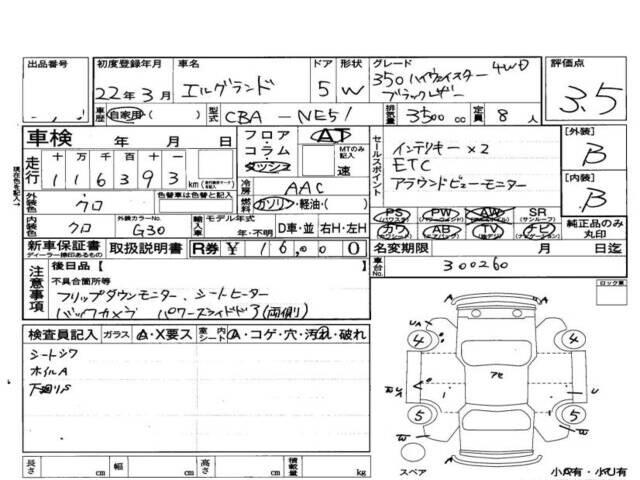 出品番号 初度登録年月 車名 ドア 形状 グレード 評価点
22年 3月 エルグランド 5 W 350 ハイウェイスター 4WD
ブラックレザー
3.5
車歴 自家用・( ) 型式 CBA - NE51 排気量 3500 cc 定員 8 人
車検 年 月 日 フロア・ AT セールスポイント インテリキー×2 [外装]
コラム・ MTのみ記入 ETC B
ダッシュ 速 アラウンドビューモニター
走行 十 万 千 百 十 一
116393 km
冷房 AAC [内装]
B
外装色 クロ 色替車は元色を記入 燃料 ガソリン・軽油・( )
PS PW AW SR
内装色 クロ 外装カラーNo. G30 輸入車 モデル年式 年・不明 D車・並 右H・左H カワ AB TV ナビ 純正品のみ丸印
新車保証書 取扱説明書 R券 ¥ 16,000 名変期限 月 日迄
ディーラー捺印あるもの
車台No. 300260
注意事項 後日品【 】
不具合箇所等
フリップダウンモニター、シートヒーター
バックカメラ パワースライドドア(両側)
ロック車
検査員記入 ガラス A・X要ス 室内 シート A・コゲ・穴・汚れ・破れ
シートシワ
ホイルA
下廻りS
4 4
アセ
U
5 5
W W
A
スペア 小A有・小U有
長さ cm 幅 cm 高さ cm 積載量 kg